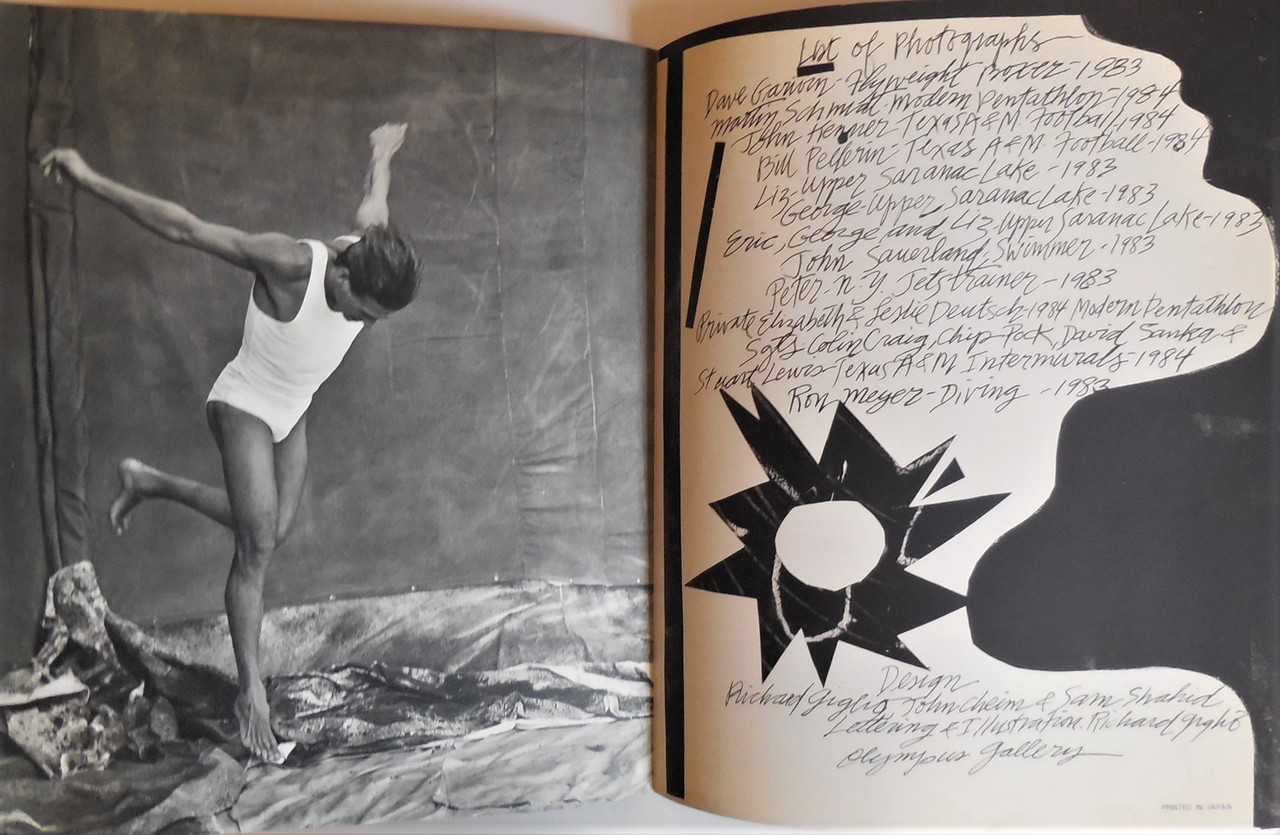 List of Photographs
Dave Garivin-Flyweight Boxer-1983
Martin Schmidt-Modern Pentathlon-1984
John Kenner Texas A&M Football, 1984
Bill Pellerin-Texas A&M. Football-1984
Liz-Upper Saranac Lake-1983
George-Upper Saranac Lake-1983
Eric, George, and Liz, Upper Saranac Lake-1983
John Sauerland, Swimmer-1983
Peter N.Y. Jets trainer-1983
Private Elizabeth & Leslie Deutsch-1984 Modern Pentathlon
Sgts. Colin Craig, Chip Pock, David Sanka &
Stuart Lewis-Texas A&M Intermurals-1984
Ron Meyer-Diving-1983
Design
Richard Giglio, John Cheim & Sam Shahid
Lettering & Illustration. Richard Giglio
Olympus Gallery
PRINTED IN JAPAN